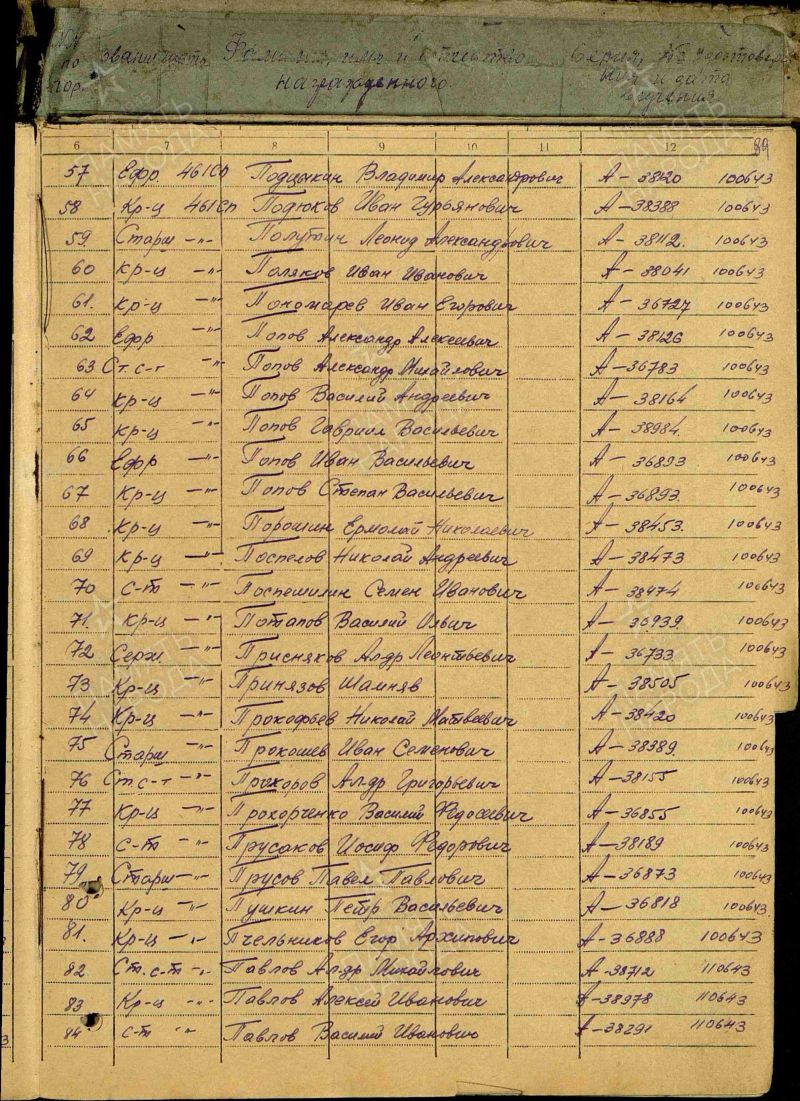 №№ по пор. звание, часть Фамилия, имя и отчество награжденного Серия, № удостоверения и дата вручения
89
6 7 8 9 10 11 12
57 Ефр. 461 СП Подцыкин Владимир Александрович А-38120 100643
58 Кр-ц 461 СП Подюков Иван Гурьянович А-38388 100643
59. Старш -"- Полутин Леонид Александрович А-38112. 100643
60 Кр-ц -"- Поляков Иван Иванович А-38041 100643
61. Кр-ц -"- Пономарев Иван Егорович А-36727 100643
62 Ефр -"- Попов Александр Алексеевич А-38126 100643
63 Ст. с-т -"- Попов Александр Михайлович А-36783 100643
64 Кр-ц -"- Попов Василий Андреевич А-38164 100643
65 Кр-ц -"- Попов Гавриил Васильевич А-38984. 100643
66 Ефр -"- Попов Иван Васильевич А-36893 100643
67 Кр-ц -"- Попов Степан Васильевич А-36893. 100643
68 Кр-ц -"- Порошин Ермолай Николаевич А-38453. 100643
69 Кр-ц -"- Поспелов Николай Андреевич А-38473 100643
70 С-т -"- Поспешилин Семен Иванович А-38474 100643
71. Кр-ц -"- Потапов Василий Ильич А-36939. 100643
72 Серж. -"- Присняков Ал-др Леонтьевич А-36733 100643
73 Кр-ц -"- Принязов Шамняв А-38505 100643
74 Кр-ц -"- Прокофьев Николай Матвеевич А-38420 100643
75 Старш -"- Прокошев Иван Семенович А-38389. 100643
76 Ст. с-т -"- Прохоров Ал-др Григорьевич А-38155 100643
77 Кр-ц -"- Прохорченко Василий Федосеевич А-36855 100643
78 С-т -"- Прусаков Иосиф Федорович А-38189 100643
79. Старш -"- Прусов Павел Павлович А-36873 100643
80 Кр-ц -"- Пушкин Петр Васильевич А-36818 100643
81. Кр-ц -"- Пчельников Егор Архипович А-36888 100643
82 Ст. с-т -"- Павлов Ал-др Михайлович А-38712 110643
83 Кр-ц -"- Павлов Алексей Иванович А-38978 110643
84 С-т -"- Павлов Василий Иванович А-38291 110643